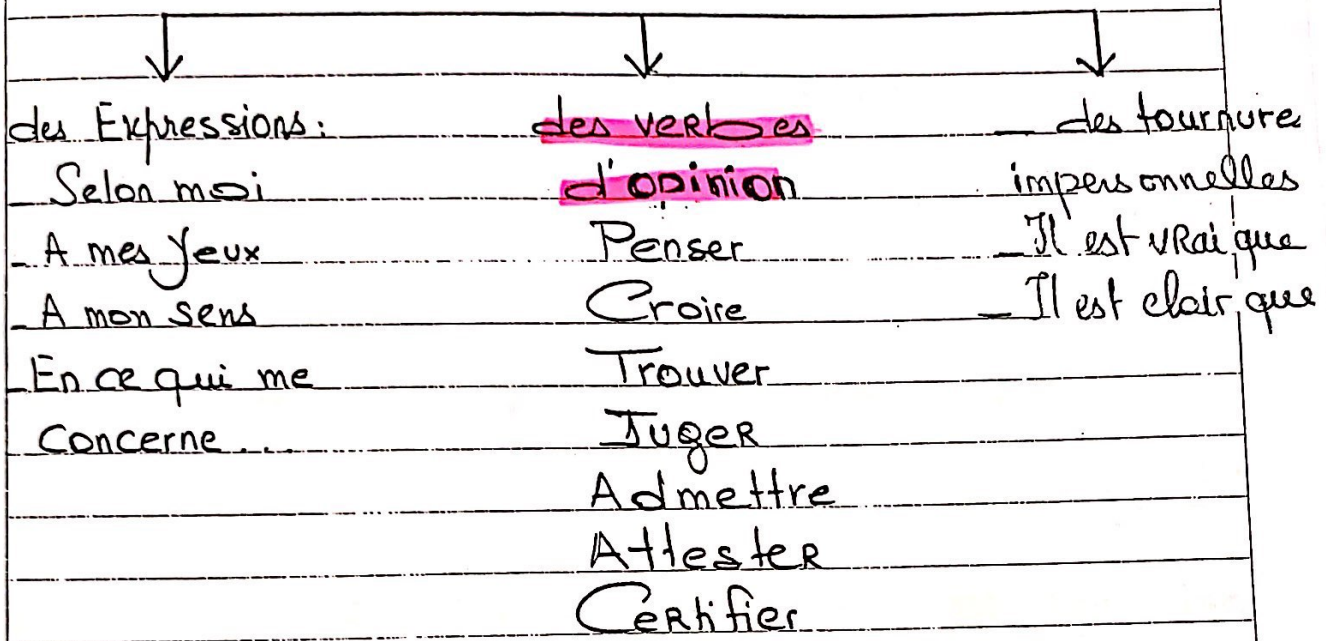 des Expressions:
_ Selon moi
_ A mes yeux
_ A mon sens
_ En ce qui me
concerne...
des verbes
d'opinion
Penser
Croire
Trouver
Juger
Admettre
Attester
Certifier
_ des tournure
impersonnelles
_ Il est vrai que
_ Il est clair que